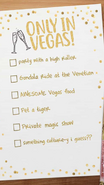 ONLY IN
VEGAS!
party with a high roller
Gondola Ride at the Venetian
Awesome Vegas food
Pet a tiger
Private magic show
something culinary I guess??